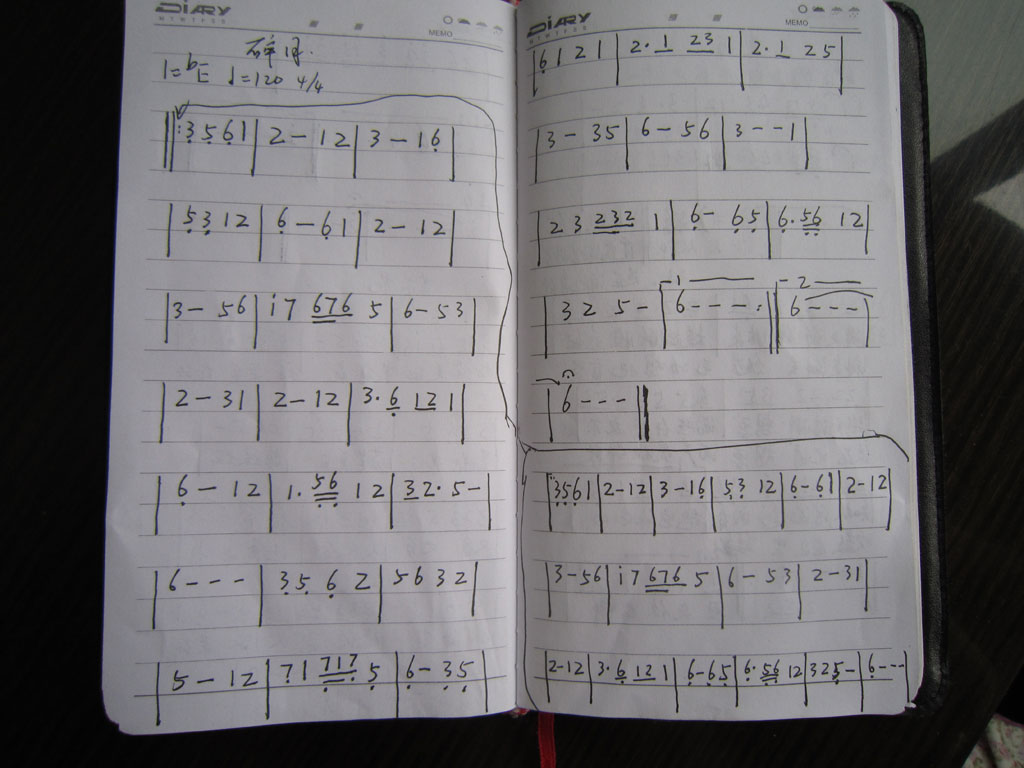 DiARY
MTWTFSS
MEMO
1=♭E ♩=120 4/4
‖: 3̣ 5̣ 6̣ 1 | 2 – 1 2 | 3 – 1 6̣ |
| 5̣ 3̣ 1 2 | 6̣ – 6̣ 1 | 2 – 1 2 |
| 3 – 5 6 | i 7 676 5 | 6 – 5 3 |
| 2 – 3 1 | 2 – 1 2 | 3 · 6̣ 12 1 |
| 6̣ – 1 2 | 1 · 5̣6̣ 1 2 | 3 2 · 5 – |
| 6 – – – | 3̣ 5̣ 6̣ 2 | 5 6 3 2 |
| 5 – 1 2 | 7 1 7̣17̣ 5̣ | 6̣ – 3̣ 5̣ |
DiARY
MTWTFSS
MEMO
| 6̣ 1 2 1 | 2 · 1 23 1 | 2 · 1 2 5 |
| 3 – 3 5 | 6 – 5 6 | 3 – – 1 |
| 2 3 232 1 | 6̣ – 6̣ 5̣ | 6̣ · 5̣6̣ 1 2 |
1 2
| 3 2 5 – | 6 – – – :‖ 6 – – – |
| 6 – – – ‖
| 3̣ 5̣ 6̣ 1 | 2 – 1 2 | 3 – 1 6̣ | 5̣ 3̣ 1 2 | 6̣ – 6̣ 1 | 2 – 1 2 |
| 3 – 5 6 | i 7 676 5 | 6 – 5 3 | 2 – 3 1 |
| 2 – 1 2 | 3 · 6̣ 12 1 | 6̣ – 6̣ 5̣ | 6̣ · 5̣6̣ 1 2 | 3 2 5̣ – | 6̣ – – – |